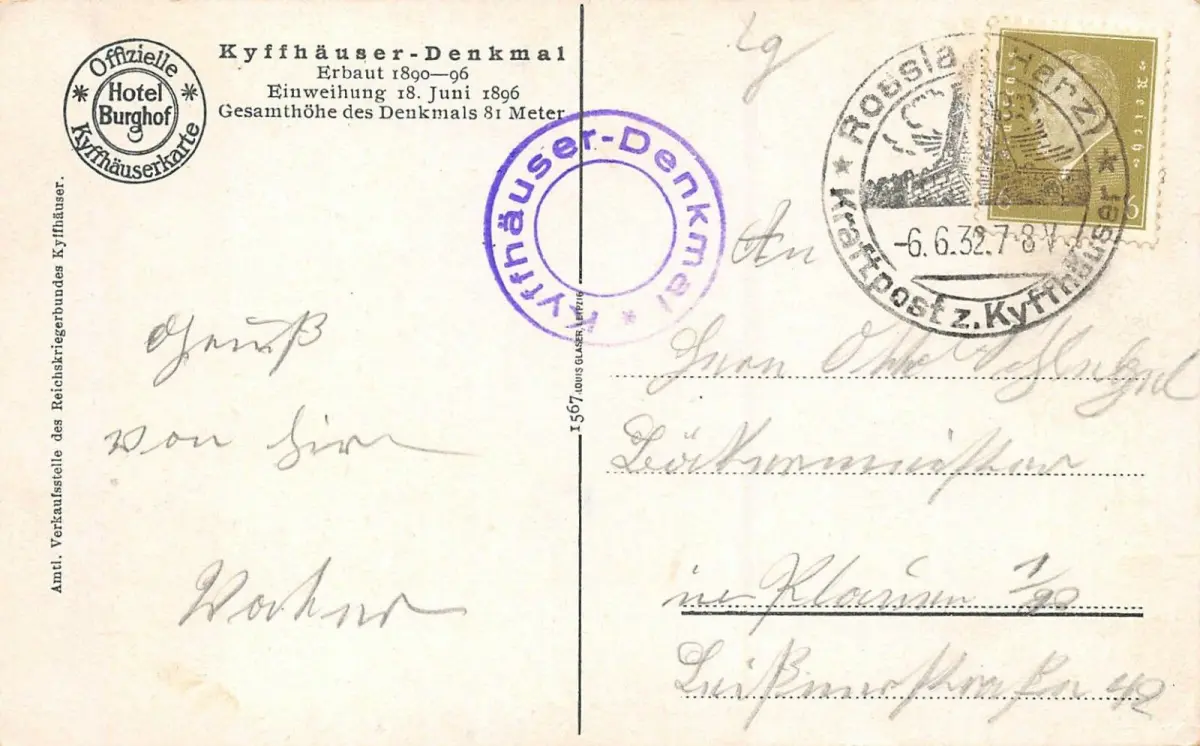 Offizielle
Hotel
Burghof
Kyffhäuserkarte
Kyffhäuser-Denkmal
Erbaut 1890—96
Einweihung 18. Juni 1896
Gesamthöhe des Denkmals 81 Meter
Amtl. Verkaufsstelle des Reichskriegerbundes Kyffhäuser.
Kyffhäuser-Denkmal *
1567 LOUIS GLASER, LEIPZIG
Gruß
von hier
An
Herrn Otto
Bäckermeister
in
42
Rossla (Harz)
-6.6.32.7-8 V.
* Kraftpost z. Kyffhäuser *
Deutsches Reich
6